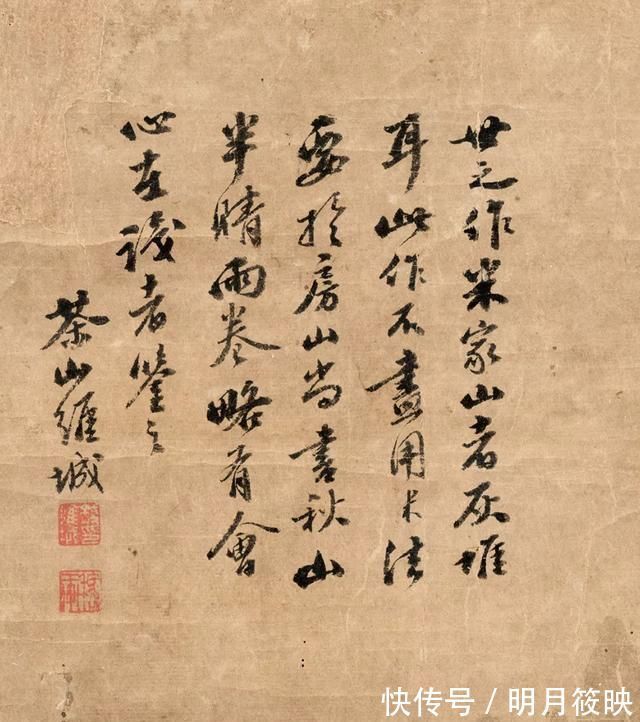 世之作米家山者灰堆
耳此作不尽用米法
要于房山尚书秋山
半晴雨卷略有会
心在识者鉴之
茶山维城
快传号/明月筱映